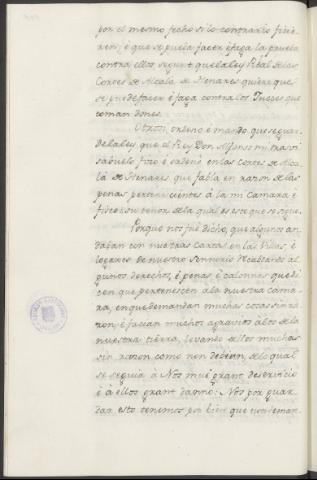 por el mesmo fecho si lo contrario ficie-
ren; é que se pueda facer é faga la prueba
contra ellos segunt que la ley Real de las
Cortes de Alcalá de Henares quiere que
se puede facer é faga contra los Jueces que
toman dones.
Otrosi, ordeno é mando que se guar-
de la ley que el Rey Don Alfonso mi trasvi-
sabuelo fizo é ordenó en las Cortes de Alca-
lá de Henares que fabla en razon de las
penas pertenescientes á la mi Camara é
fisco su tenor de la qual es este que se sigue.
Porque nos fué dicho que algunos an-
daban con nuestras cartas en las Villas, é
logares de nuestro Sennorio recabdando al-
gunos derechos, é penas é calonnas que di-
cen que pertenescen á la nuestra cama-
ra, en que demandan muchas cosas sin ra-
zon, é facian muchos agravios á los de la
nuestra tierra, levando de ellos muchas
sin razon como non debian, de lo qual
se seguia á Nos muy grant deservicio
é á ellos grant danno: Nos por guar-
dar esto tenemos por bien que non deman-